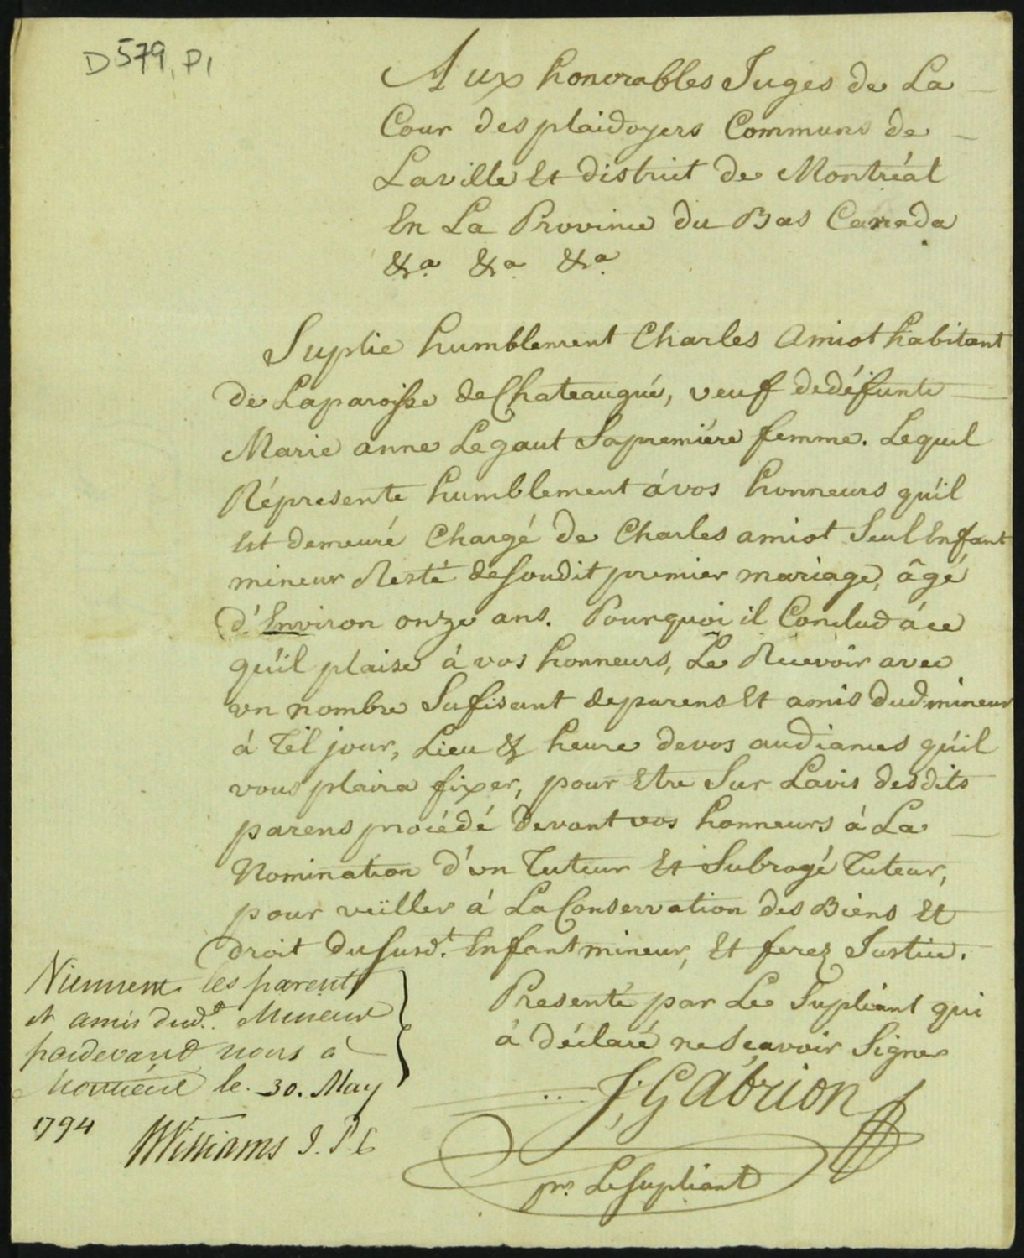 D579, P1
Aux honorables Juges de La
Cour des plaidoyers Communs de
Laville Et district de Montréal
En La Province du Bas Canada
&a &a &a
Suplie humblement Charles Amiot habitant
de Laparoisse de Chateaugué, veuf dedéfunte
Marie anne Legaut Sapremiére femme. Lequel
Répresente humblement á vos honneurs qu'il
Est demeuré Chargé de Charles amiot Seul Enfant
mineur Resté desondit premier mariage, âgé
d'Environ onze ans. Pourquoi il Conclud á ce
qu'il plaise á vos honneurs, Le Recevoir avec
un nombre Sufisant deparens Et amis dud mineur
á Tel jour, Lieu & heure devos audiances qu'il
vous plaira fixer, pour Etre Sur Lavis desdits
parens procédé devant vos honneurs á La
Nomination d'un Tuteur Et Subrogé Tuteur,
pour veiller á La Conservation des Biens Et
droit du Susdt. Enfant mineur, Et ferez Justice.
Presenté par Le Supliant qui
á déclaré ne Scavoir Signer
J. GAbrion
pr. LeSupliant
Viennent les parents
et amis dud. Mineur
pardevant nous a
Montréal le 30. May
1794
JWilliams J. P C